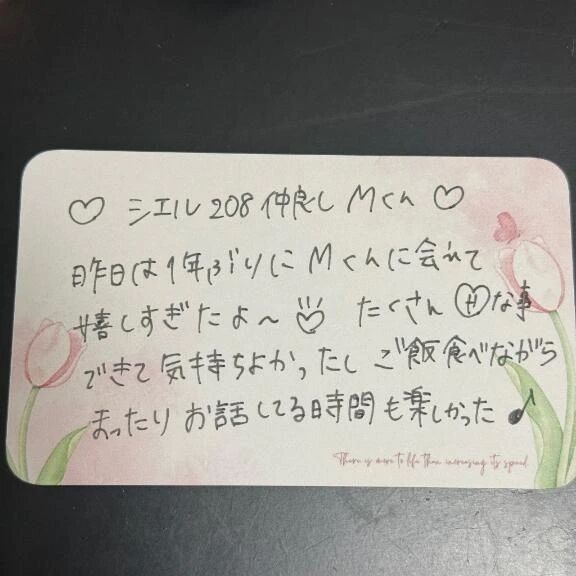 ♡ シエル 208 仲良し Mくん ♡
昨日は1年ぶりにMくんに会れて
嬉しすぎたよ〜 たくさん Hな事
できて気持ちよかったし ご飯食べながら
まったり お話してる時間も楽しかった♪
There is more to life than increasing its speed.